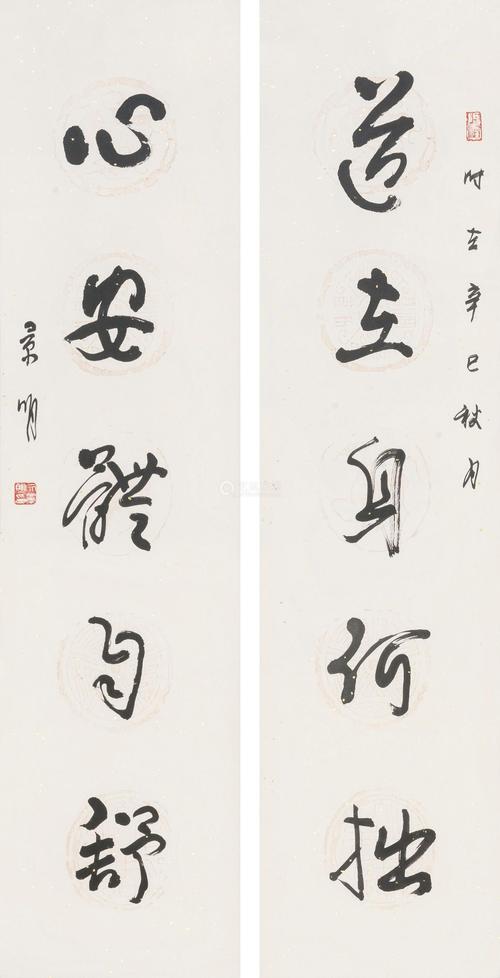 時在辛巳秋月
道在身何拙
心安體自舒
景明